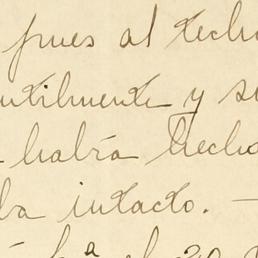 pues al techo
utilmente y su
habría hecho
ba intacto. —